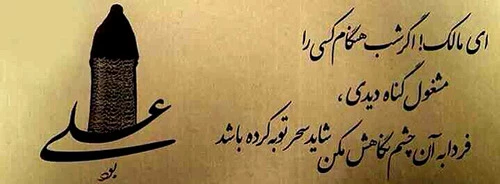 ای مالک! اگر شب هنگام کسی را
مشغول گناه دیدی،
فردا به آن چشم نگاهش مکن شاید سحر توبه کرده باشد
علی